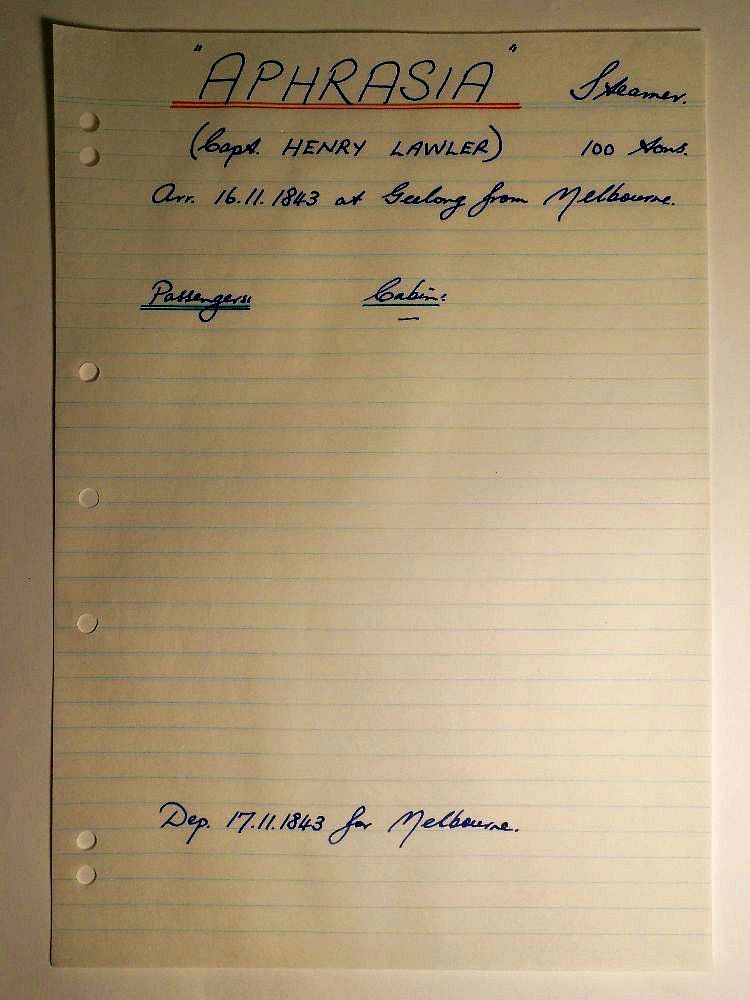 "APHRASIA" Steamer.
(Capt. HENRY LAWLER) 100 tons.
Arr. 16.11.1843 at Geelong from Melbourne.
Passengers: Cabin:
—
Dep. 17.11.1843 for Melbourne.